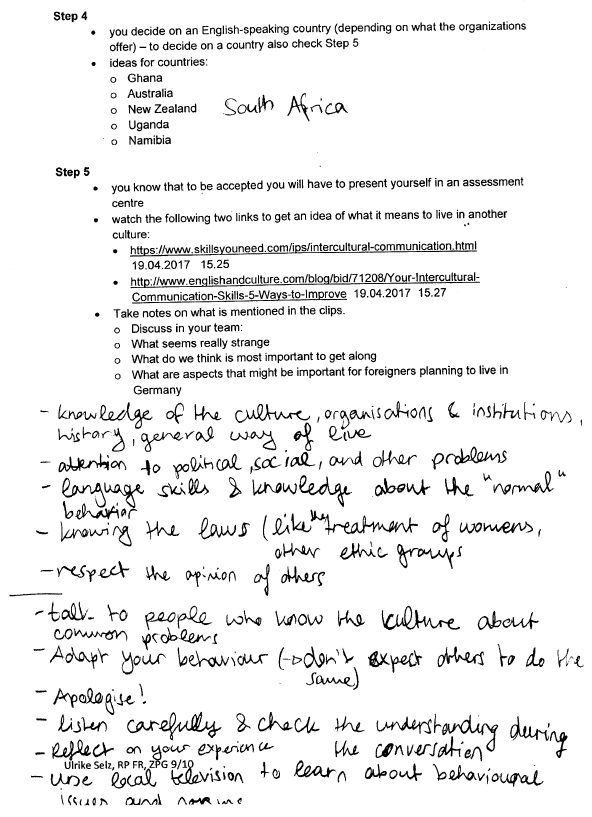 Step 4
• you decide on an English-speaking country (depending on what the organizations
offer) – to decide on a country also check Step 5
• ideas for countries:
o Ghana
o Australia
o New Zealand South Africa
o Uganda
o Namibia
Step 5
• you know that to be accepted you will have to present yourself in an assessment
centre
• watch the following two links to get an idea of what it means to live in another
culture:
• https://www.skillsyouneed.com/ips/intercultural-communication.html
19.04.2017 15.25
• http://www.englishandculture.com/blog/bid/71208/Your-Intercultural-
Communication-Skills-5-Ways-to-Improve 19.04.2017 15.27
• Take notes on what is mentioned in the clips.
o Discuss in your team:
o What seems really strange
o What do we think is most important to get along
o What are aspects that might be important for foreigners planning to live in
Germany
- knowledge of the culture, organisations & institutions,
history, general way of live
- attention to political, social, and other problems
- language skills & knowledge about the "normal"
behavior
- knowing the laws (like the treatment of womens,
other ethic groups
- respect the opinion of others
- talk to people who know the culture about
common problems
- Adapt your behaviour (→ don't expect others to do the
same)
- Apologise!
- listen carefully & check the understanding during
the conversation
- Reflect on your experience
Ulrike Selz, RP FR, ZPG 9/10
- use local television to learn about behavioural
issues and norms